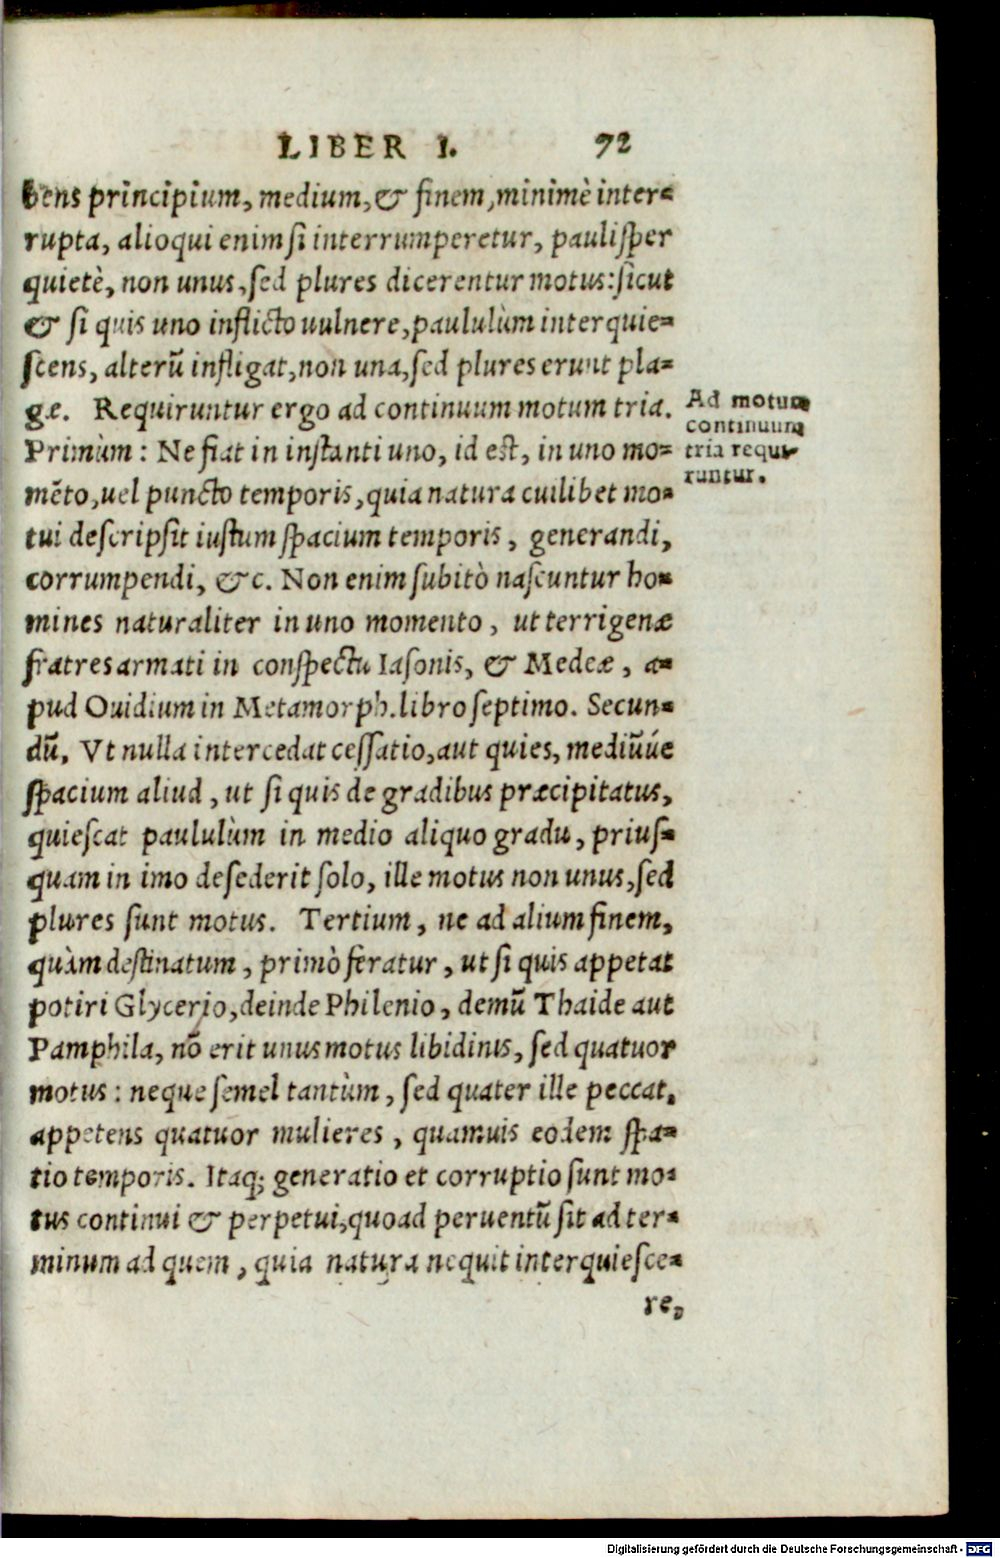 LIBER I. 72
bens principium, medium, & finem, minimè inter-
rupta, alioqui enim si interrumperetur, paulisper
quietè, non unus, sed plures dicerentur motus: sicut
& si quis uno inflicto uulnere, paululùm interquie-
scens, alterũ infligat, non una, sed plures erunt pla-
gæ. Requiruntur ergo ad continuum motum tria.
Primùm: Ne fiat in instanti uno, id est, in uno mo-
mẽto, uel puncto temporis, quia natura cuilibet mo-
tui descripsit iustum spacium temporis, generandi,
corrumpendi, &c. Non enim subitò nascuntur ho-
mines naturaliter in uno momento, ut terrigenæ
fratres armati in conspectu Iasonis, & Medeæ, a-
pud Ouidium in Metamorph. libro septimo. Secun-
dũ. Vt nulla intercedat cessatio, aut quies, mediũúe
spacium aliud, ut si quis de gradibus præcipitatus,
quiescat paululùm in medio aliquo gradu, prius-
quam in imo desederit solo, ille motus non unus, sed
plures sunt motus. Tertium, ne ad alium finem,
quàm destinatum, primò feratur, ut si quis appetat
potiri Glycerio, deinde Philenio, demũ Thaide aut
Pamphila, nõ erit unus motus libidinis, sed quatuor
motus: neque semel tantùm, sed quater ille peccat,
appetens quatuor mulieres, quamuis eodem spa-
tio temporis. Itaq; generatio et corruptio sunt mo-
tus continui & perpetui, quoad peruentũ sit ad ter-
minum ad quem, quia natura nequit interquiesce-
re,
Ad motum
continuum
tria requi-
runtur.
Digitalisierung gefördert durch die Deutsche Forschungsgemeinschaft - DFG